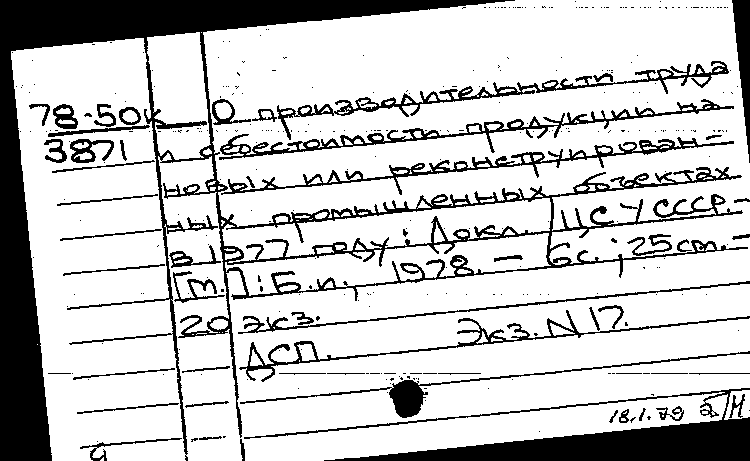 78-50к О производительности труда
3871 и себестоимости продукции на
новых или реконструирован=
ных промышленных объектах
в 1977 году: Докл. / ЦСУ СССР.-
[м.]: Б.и., 1978. - 6с.; 25см.-
20 экз.
Экз. N 17.
ДСП.
18.1.79